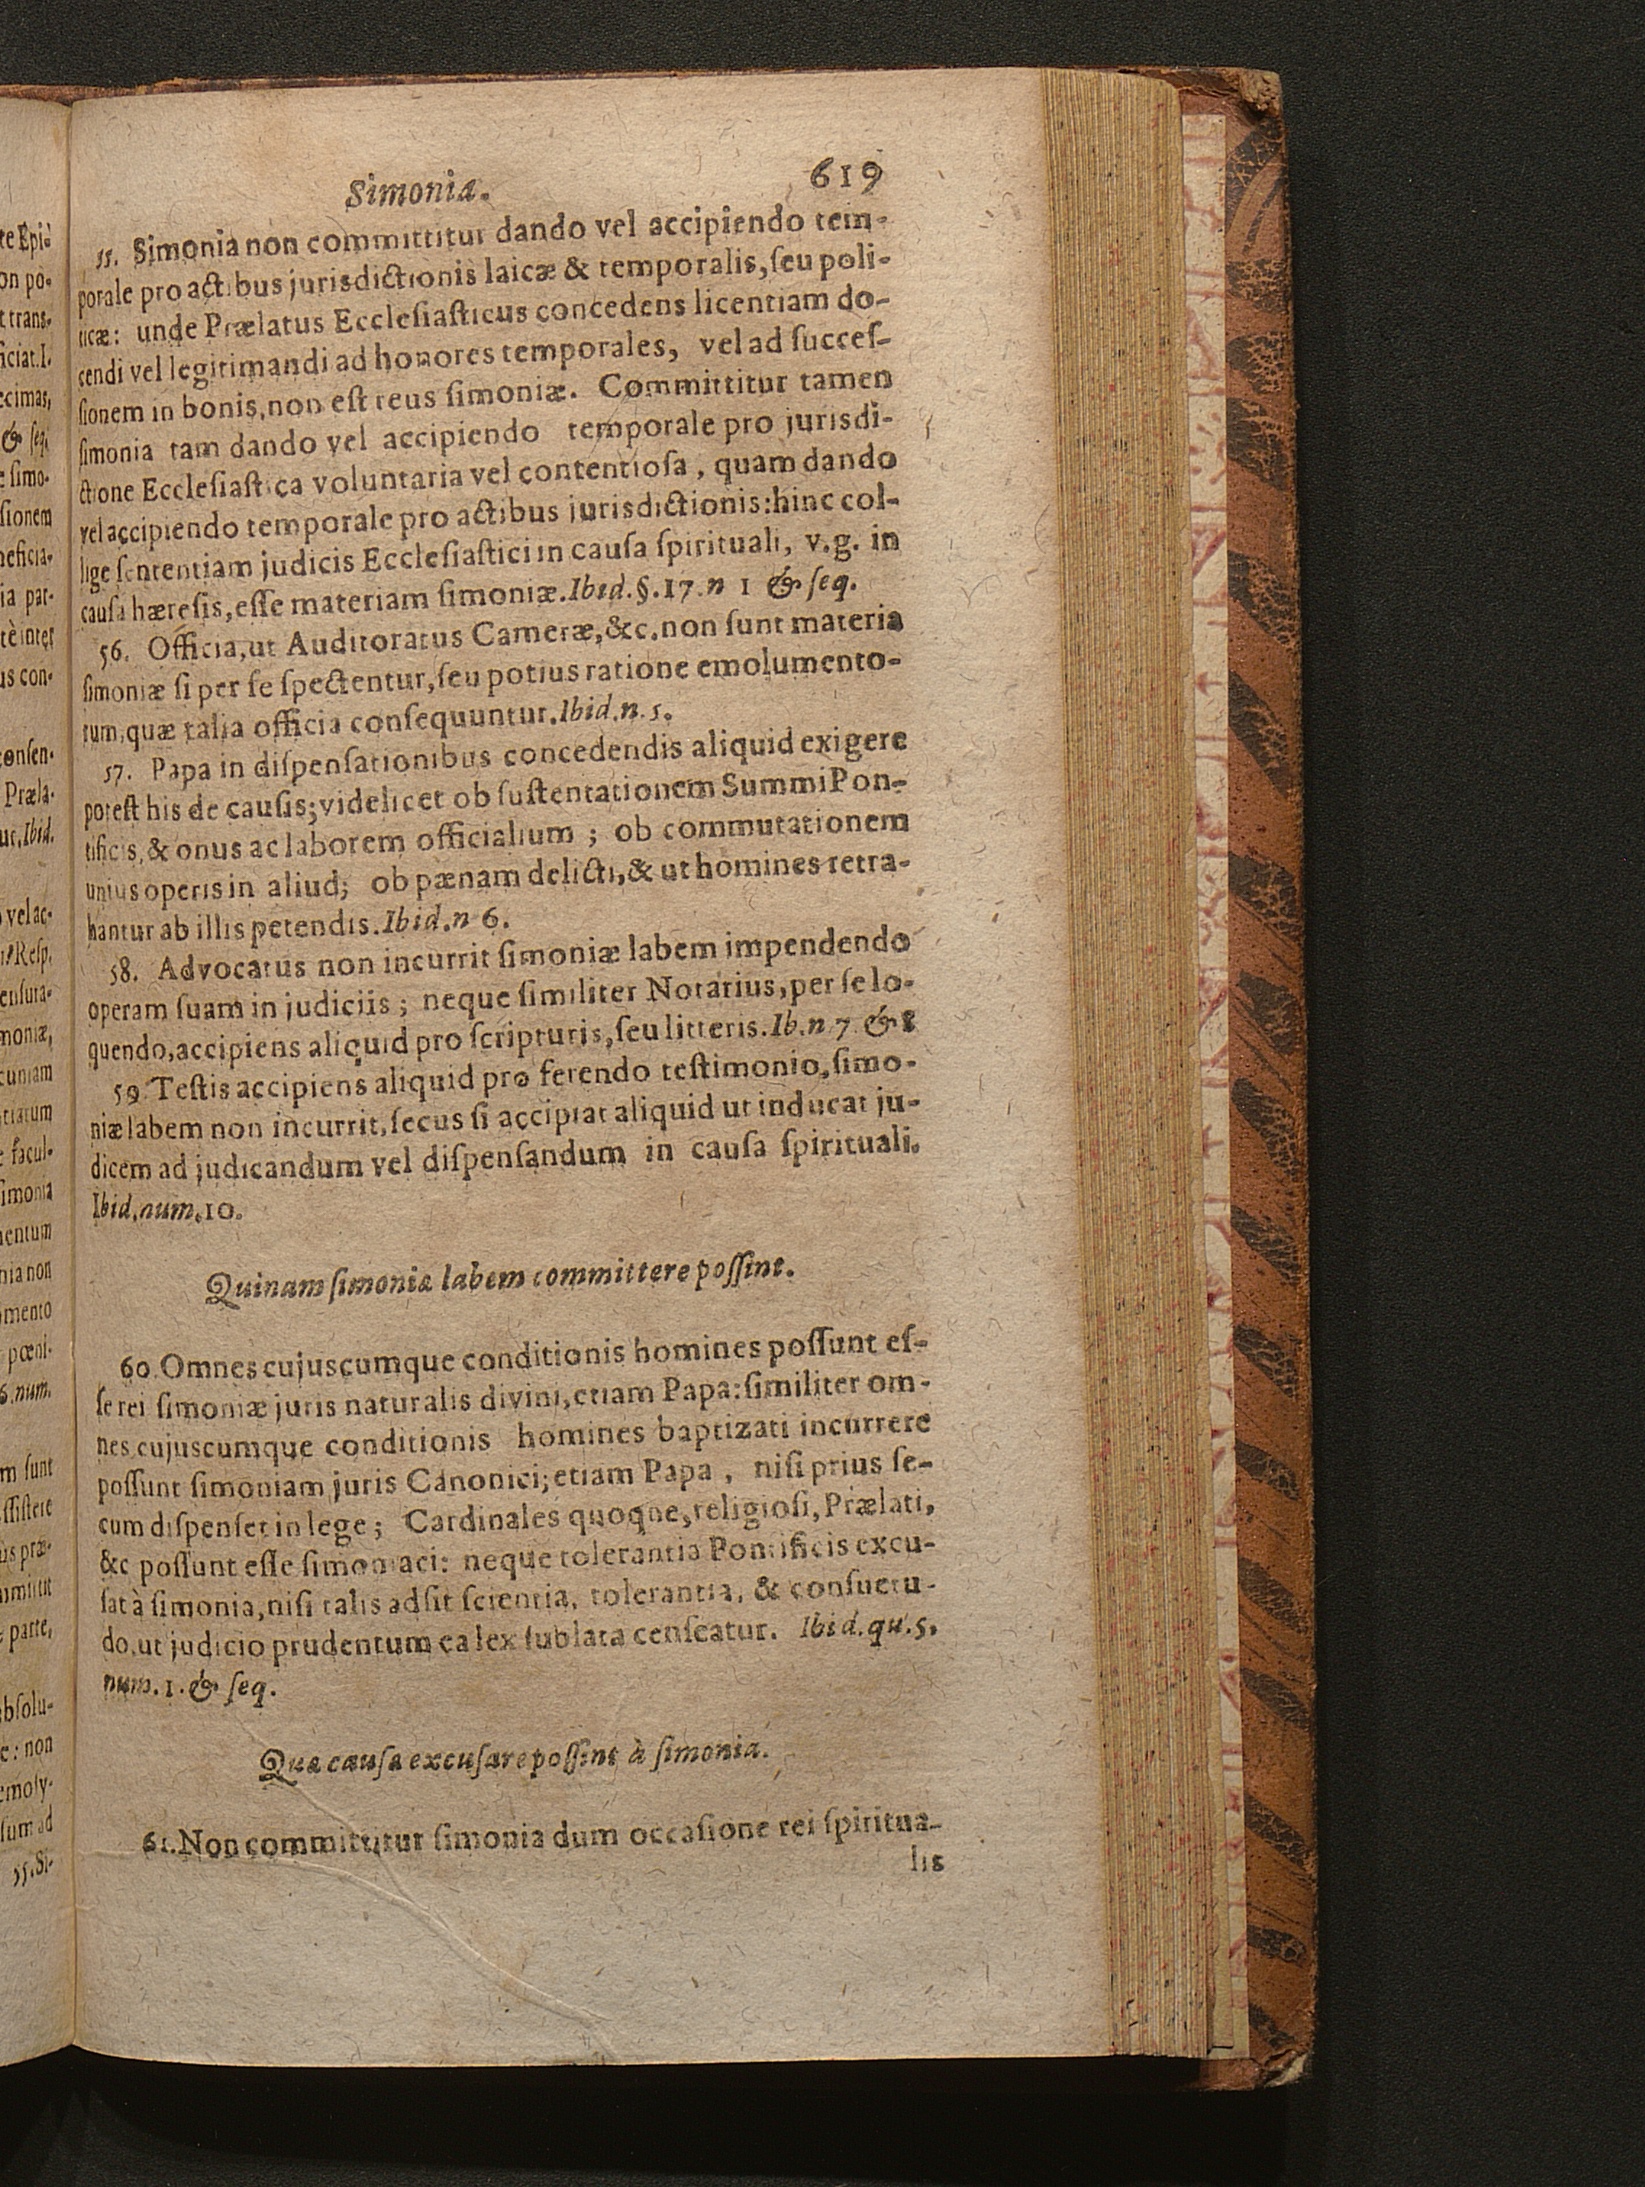 Simoniæ.
619
55. Simonia non committitur dando vel accipiendo tem-
porale pro actibus jurisdictionis laicæ & temporalis, ſeu poli-
ticæ: unde Prælatus Eccleſiaſticus concedens licentiam do-
cendi vel legitimandi ad honores temporales, vel ad ſucceſ-
ſionem in bonis, non eſt reus ſimoniæ. Committitur tamen
ſimonia tam dando vel accipiendo temporale pro jurisdi-
ctione Eccleſiaſtica voluntaria vel contentioſa, quam dando
vel accipiendo temporale pro actibus jurisdictionis: hinc col-
lige ſententiam judicis Eccleſiaſtici in cauſa ſpirituali, v.g. in
cauſa hæreſis, eſſe materiam ſimoniæ. Ibid. §. 17. n 1 & ſeq.
56. Officia, ut Auditoratus Cameræ, &c. non ſunt materia
ſimoniæ ſi per ſe ſpectentur, ſeu potius ratione emolumento-
rum, quæ talia officia conſequuntur. Ibid. n. 5.
57. Papa in diſpenſationibus concedendis aliquid exigere
poteſt his de cauſis; videlicet ob ſuſtentationem Summi Pon-
tificis, & onus ac laborem officialium; ob commutationem
unius operis in aliud; ob pænam delicti, & ut homines retra-
hantur ab illis petendis. Ibid. n 6.
58. Advocatus non incurrit ſimoniæ labem impendendo
operam ſuam in judiciis; neque ſimiliter Notarius, per ſe lo-
quendo, accipiens aliquid pro ſcripturis, ſeu litteris. Ib. n 7 & 8
59. Teſtis accipiens aliquid pro ferendo teſtimonio, ſimo-
niæ labem non incurrit, ſecus ſi accipiat aliquid ut inducat ju-
dicem ad judicandum vel diſpenſandum in cauſa ſpirituali.
Ibid. num. 10.
Quinam ſimoniæ labem committere poſſint.
60. Omnes cujuscumque conditionis homines poſſunt eſ-
ſe rei ſimoniæ juris naturalis divini, etiam Papa: ſimiliter om-
nes cujuscumque conditionis homines baptizati incurrere
poſſunt ſimoniam juris Canonici; etiam Papa, niſi prius ſe-
cum diſpenſet in lege; Cardinales quoque, religioſi, Prælati,
&c poſſunt eſſe ſimoniaci: neque tolerantia Pontificis excu-
ſat à ſimonia, niſi talis adſit ſcientia, tolerantia, & conſuetu-
do, ut judicio prudentum ea lex ſublata cenſeatur. Ibid. qu. 5.
num. 1. & ſeq.
Quæ cauſæ excuſare poſſint à ſimonia.
61. Non committitur ſimonia dum occaſione rei ſpiritua-
lis